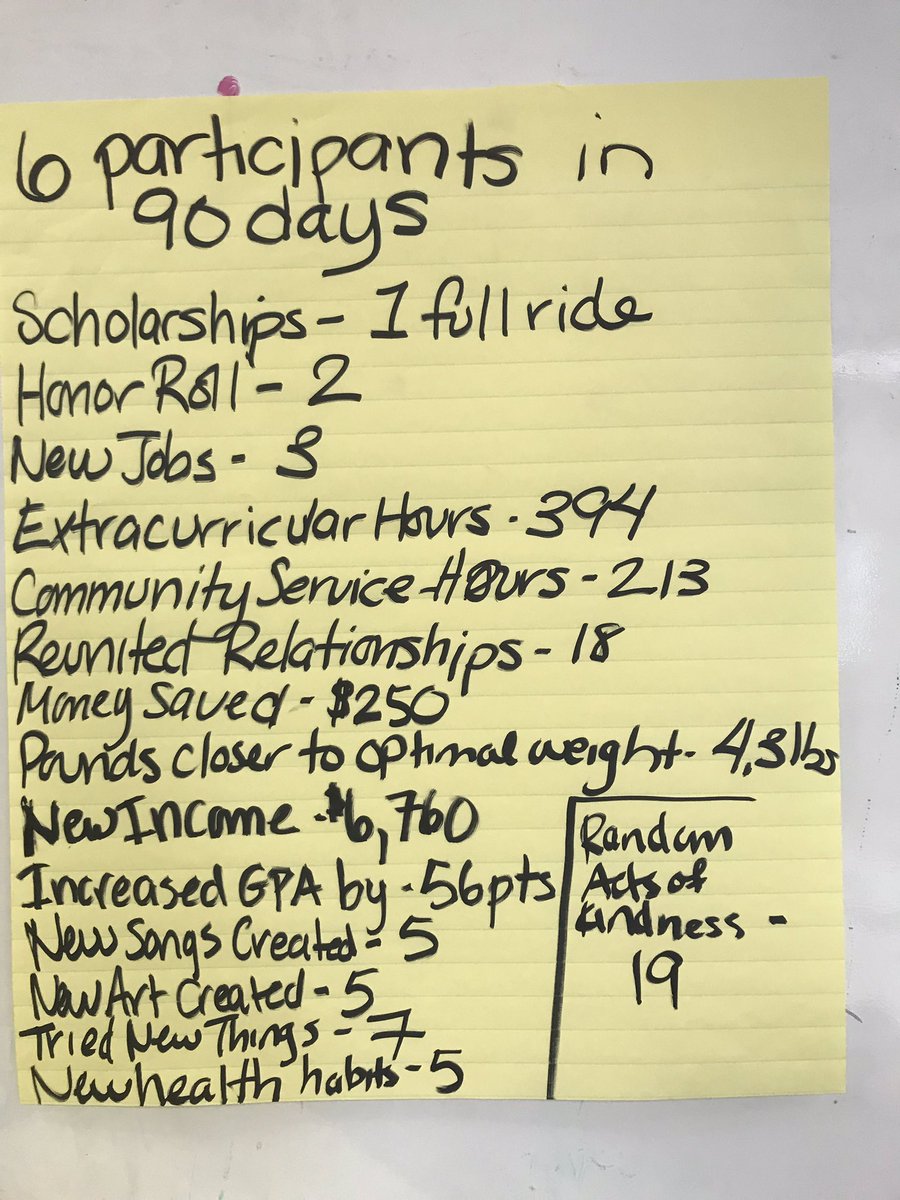 6 participants in
90 days
Scholarships - 1 full ride
Honor Roll - 2
New Jobs - 3
Extracurricular Hours - 394
Community Service Hours - 213
Reunited Relationships - 18
Money Saved - $250
Pounds closer to optimal weight - 4.3 lbs
New Income - $6,760
Increased GPA by - .56pts
New Songs Created - 5
New Art Created - 5
Tried New Things - 7
New health habits - 5
Random
Acts of
kindness -
19